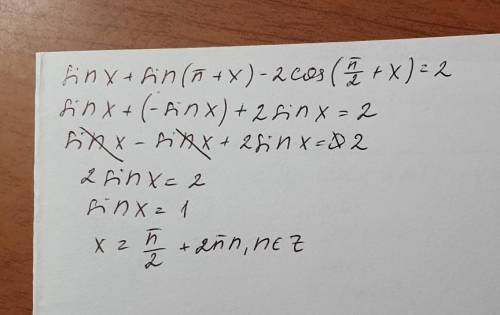 sin x + sin(π + x) - 2cos(π/2 + x) = 2
sin x + (-sin x) + 2 sin x = 2
sin x - sin x + 2 sin x = 2
2 sin x = 2
sin x = 1
x = π/2 + 2πn, n ∈ Z